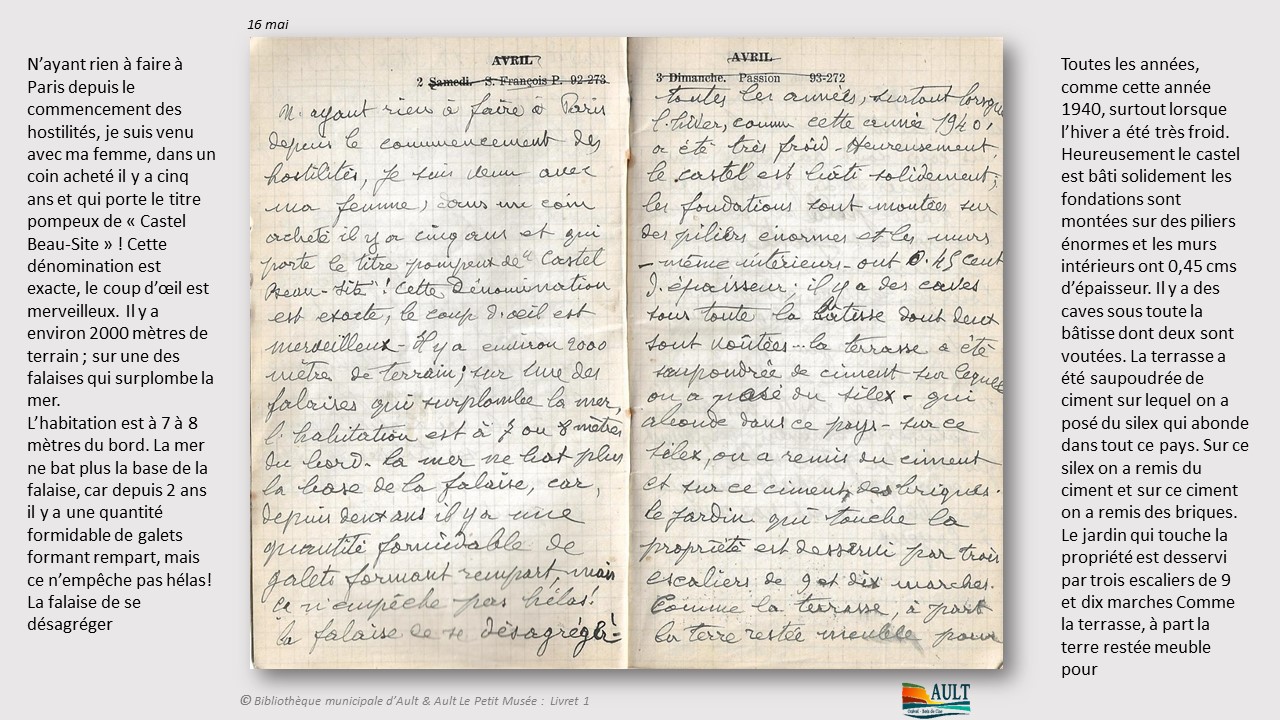 16 mai
N’ayant rien à faire à
Paris depuis le
commencement des
hostilités, je suis venu
avec ma femme, dans un
coin acheté il y a cinq
ans et qui porte le titre
pompeux de « Castel
Beau-Site » ! Cette
dénomination est
exacte, le coup d’œil est
merveilleux. Il y a
environ 2000 mètres de
terrain ; sur une des
falaises qui surplombe la
mer.
L’habitation est à 7 à 8
mètres du bord. La mer
ne bat plus la base de la
falaise, car depuis 2 ans
il y a une quantité
formidable de galets
formant rempart, mais
ce n’empêche pas hélas!
La falaise de se
désagréger
AVRIL
2 Samedi. S. François P. 92-273
N'ayant rien à faire à Paris
depuis le commencement des
hostilités, je suis venu avec
ma femme, dans un coin
acheté il y a cinq ans et qui
porte le titre pompeux de "Castel
Beau-Site"! Cette Dénomination
est exacte, le coup d'œil est
merveilleux - Il y a environ 2000
mètres de terrain ; sur une des
falaises qui surplombe la mer,
l'habitation est à 7 ou 8 mètres
du bord. La mer ne bat plus
la base de la falaise, car,
depuis deux ans il y a une
quantité formidable de
galets formant rempart, mais
ce n'empêche pas hélas!
la falaise de se désagréger -
AVRIL
3 Dimanche. Passion 93-272
toutes les années, surtout lorsque
l'hiver, comme cette année 1940,
a été très froid - Heureusement,
le castel est bâti solidement,
les fondations sont montées sur
des piliers énormes et les murs
- même intérieurs - ont 0.45 cent
d'épaisseur. il y a des caves
sous toute la bâtisse dont deux
sont voûtées... la terrasse a été
saupoudrée de ciment sur laquelle
on a posé du silex - qui
abonde dans ce pays - sur ce
silex, on a remis du ciment
et sur ce ciment, des briques.
le jardin qui touche la
propriété est desservi par trois
escaliers de 9 et dix marches.
Comme la terrasse, à part
la terre restée meuble pour
Toutes les années,
comme cette année
1940, surtout lorsque
l’hiver a été très froid.
Heureusement le castel
est bâti solidement les
fondations sont
montées sur des piliers
énormes et les murs
intérieurs ont 0,45 cms
d’épaisseur. Il y a des
caves sous toute la
bâtisse dont deux sont
voutées. La terrasse a
été saupoudrée de
ciment sur lequel on a
posé du silex qui abonde
dans tout ce pays. Sur ce
silex on a remis du
ciment et sur ce ciment
on a remis des briques.
Le jardin qui touche la
propriété est desservi
par trois escaliers de 9
et dix marches Comme
la terrasse, à part la
terre restée meuble
pour
© Bibliothèque municipale d’Ault & Ault Le Petit Musée : Livret 1
AULT